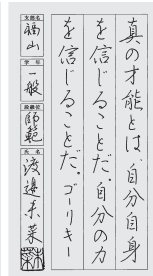 真の才能とは、自分自身
を信じることだ。自分の力
を信じることだ。ゴーリキー
支部名
福山
学年
一般
段級位
師範
氏名
渡邉未菜